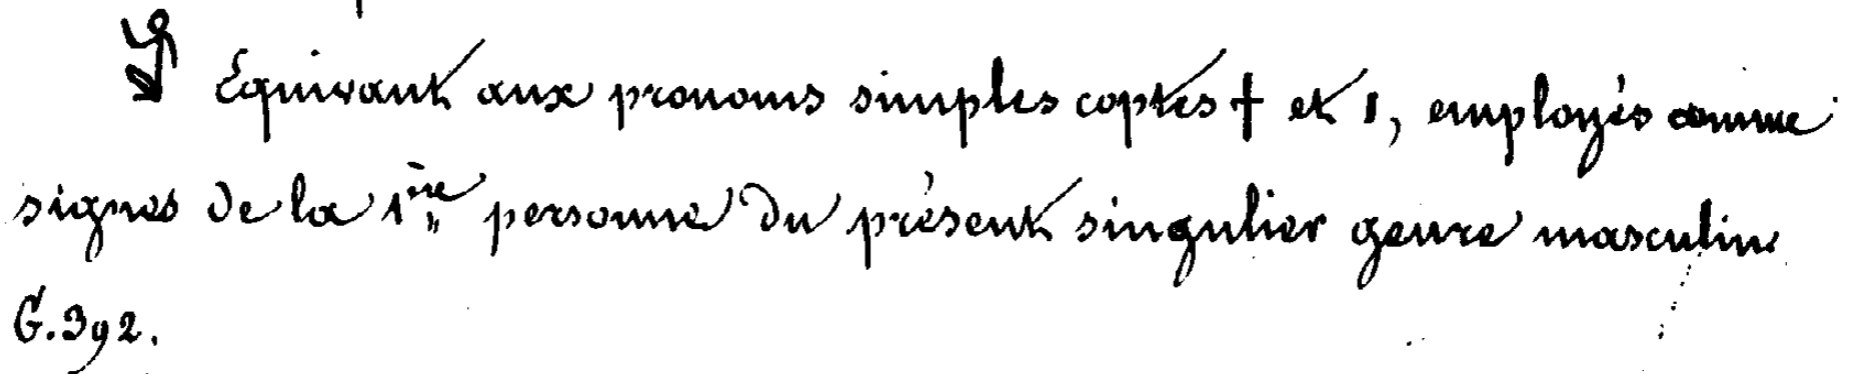 Equivaut aux pronoms simples coptes ϯ et ⲓ, employés comme
signes de la 1ère personne du présent singulier genre masculin
G. 392.